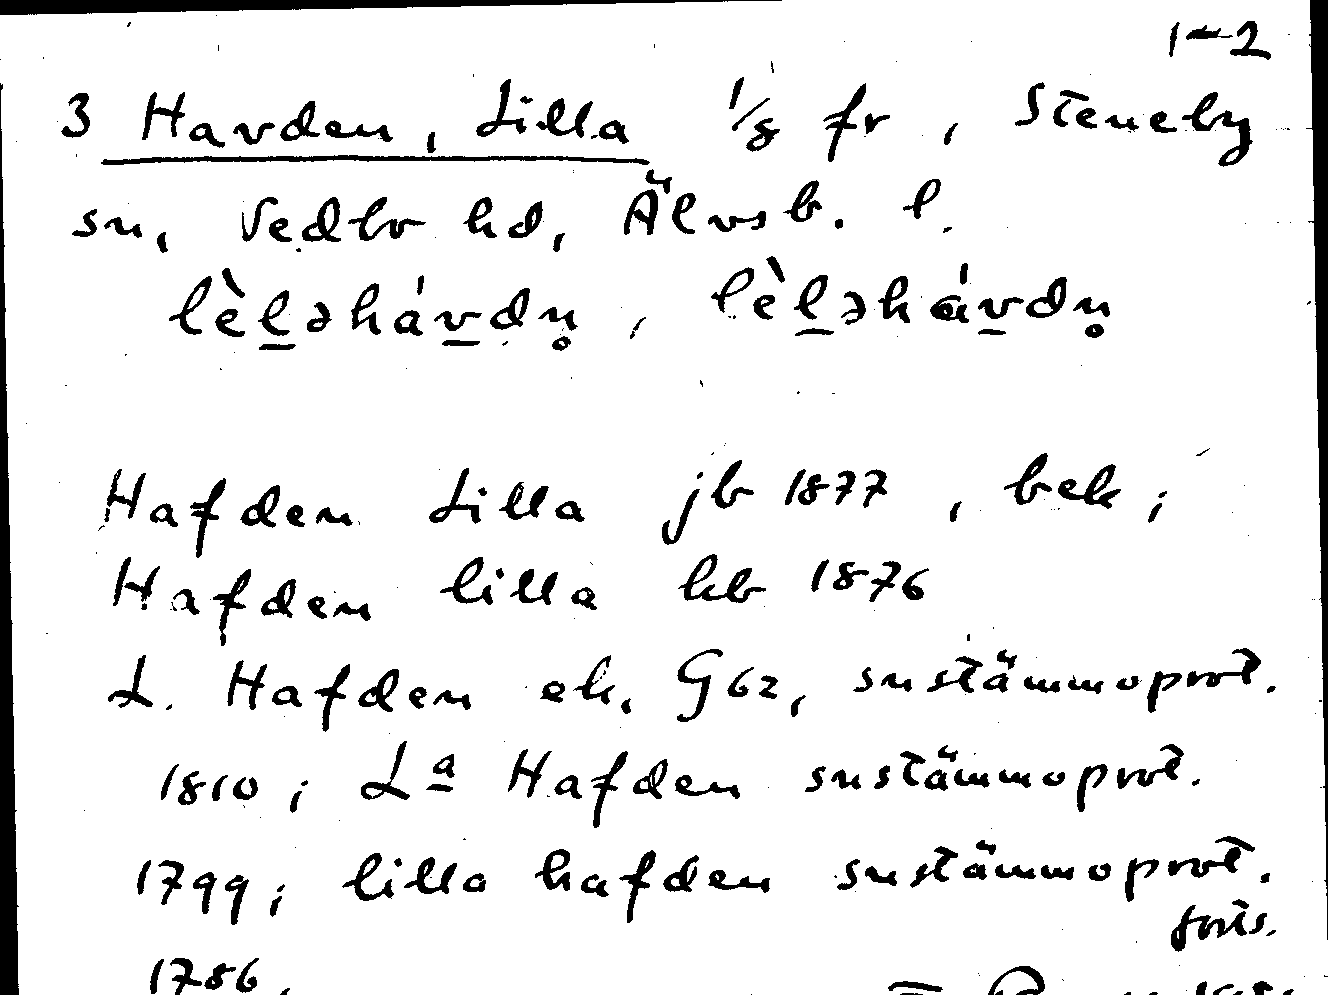 1-2
3 Havden, Lilla 1/8 fr, Steneby
sn, Vedbo hd, Älvsb. l.
lèl̠əháv̠dn̥, lèl̠əháv̠dn̥
Hafden Lilla jb 1877, bek;
Hafden lilla kb 1876
L. Hafden ek, G62, snstämmoprot.
1810; La Hafden snstämmoprot.
1799; lilla hafden snstämmoprot.
forts.
1786.